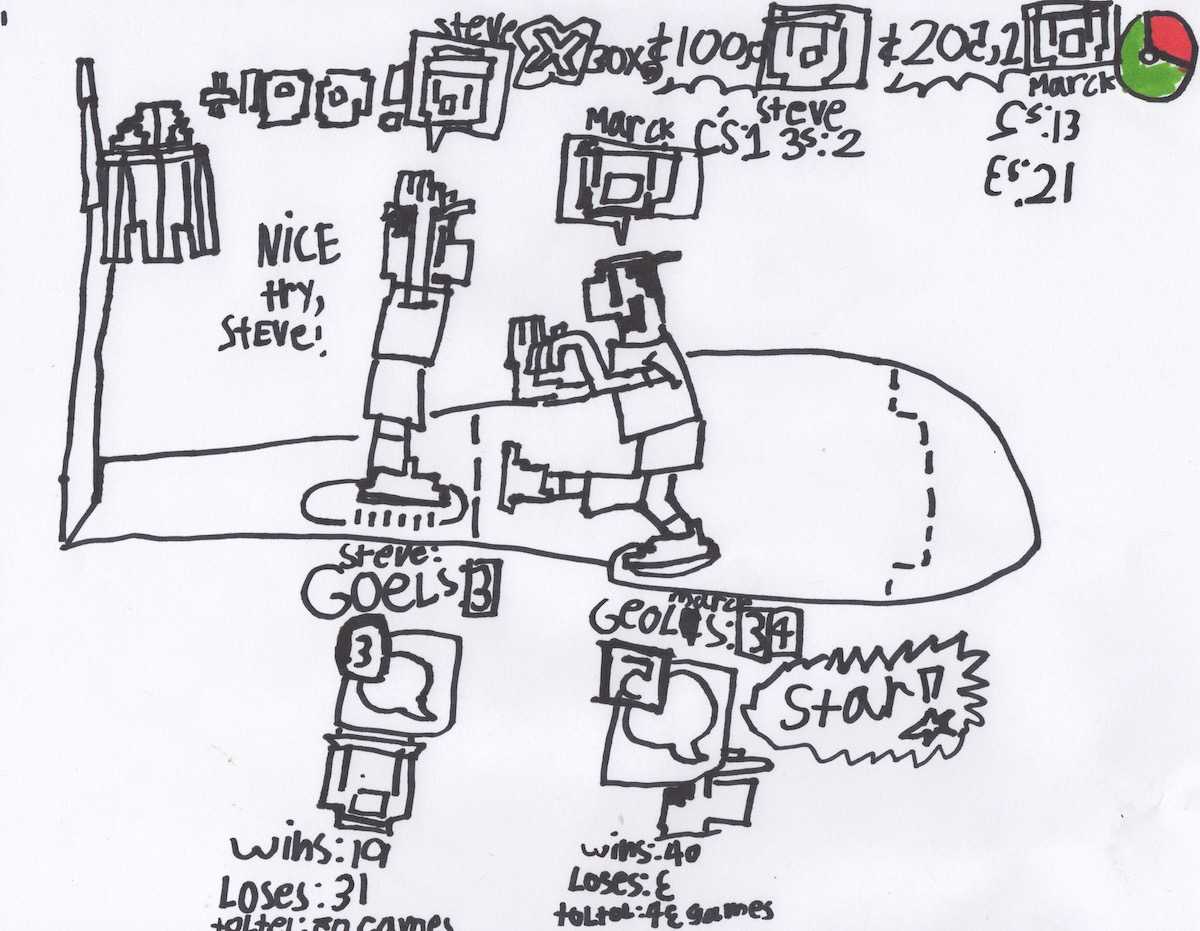 steve
30x
¢100,0
¢205,2
Marck
steve
C'S:1 3s:2
Cs:13
Es:21
Marck
NiCE
try,
StEVe!
Steve:
GOELS:3
marck
GEOLS:34
3
2
Star!!
wins:19
LOSES:31
toLteL:50 games
wins:40
LOSES:3
toLtoL:43 games